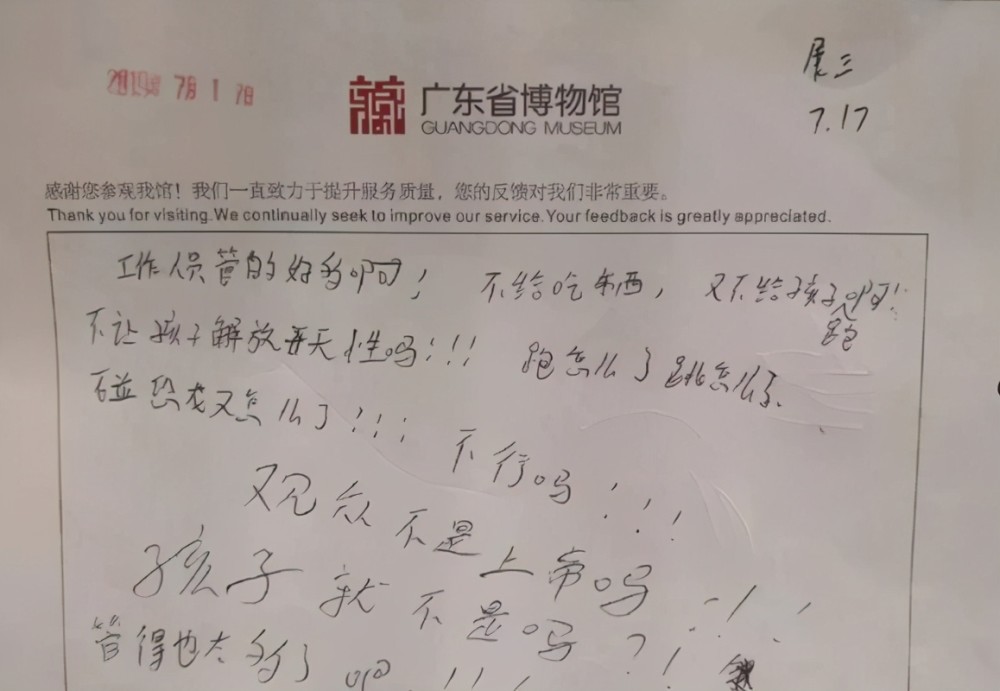 展三
2019年7月17日
广东省博物馆
GUANGDONG MUSEUM
7.17
感谢您参观我馆！我们一直致力于提升服务质量，您的反馈对我们非常重要。
Thank you for visiting.We continually seek to improve our service.Your feedback is greatly appreciated.
工作人员管的好多啊！ 不给吃东西， 又不给孩子跑啊！
不让孩子解放天性吗！！！ 跑怎么了跳怎么了、
碰恐龙又怎么了！！！ 不行吗！！！
观众不是上帝吗！！！
孩子就不是吗？！
管得也太多了吧！！！